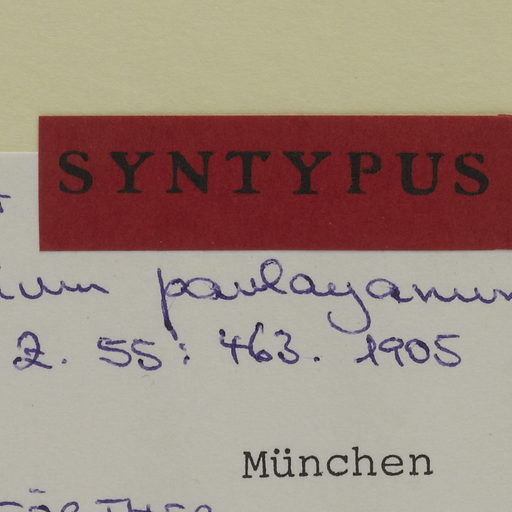 SYNTYPUS
paulayanum
2. 55: 463. 1905
München